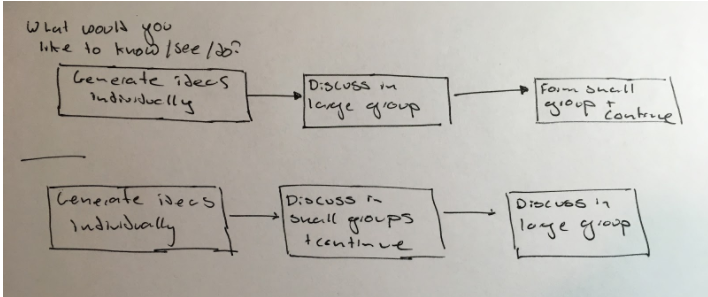 What would you
like to know/see/do?
Generate ideas
individually
Discuss in
large group
Form small
group +
continue
Generate ideas
Individually
Discuss in
small groups
+ continue
Discuss in
large group